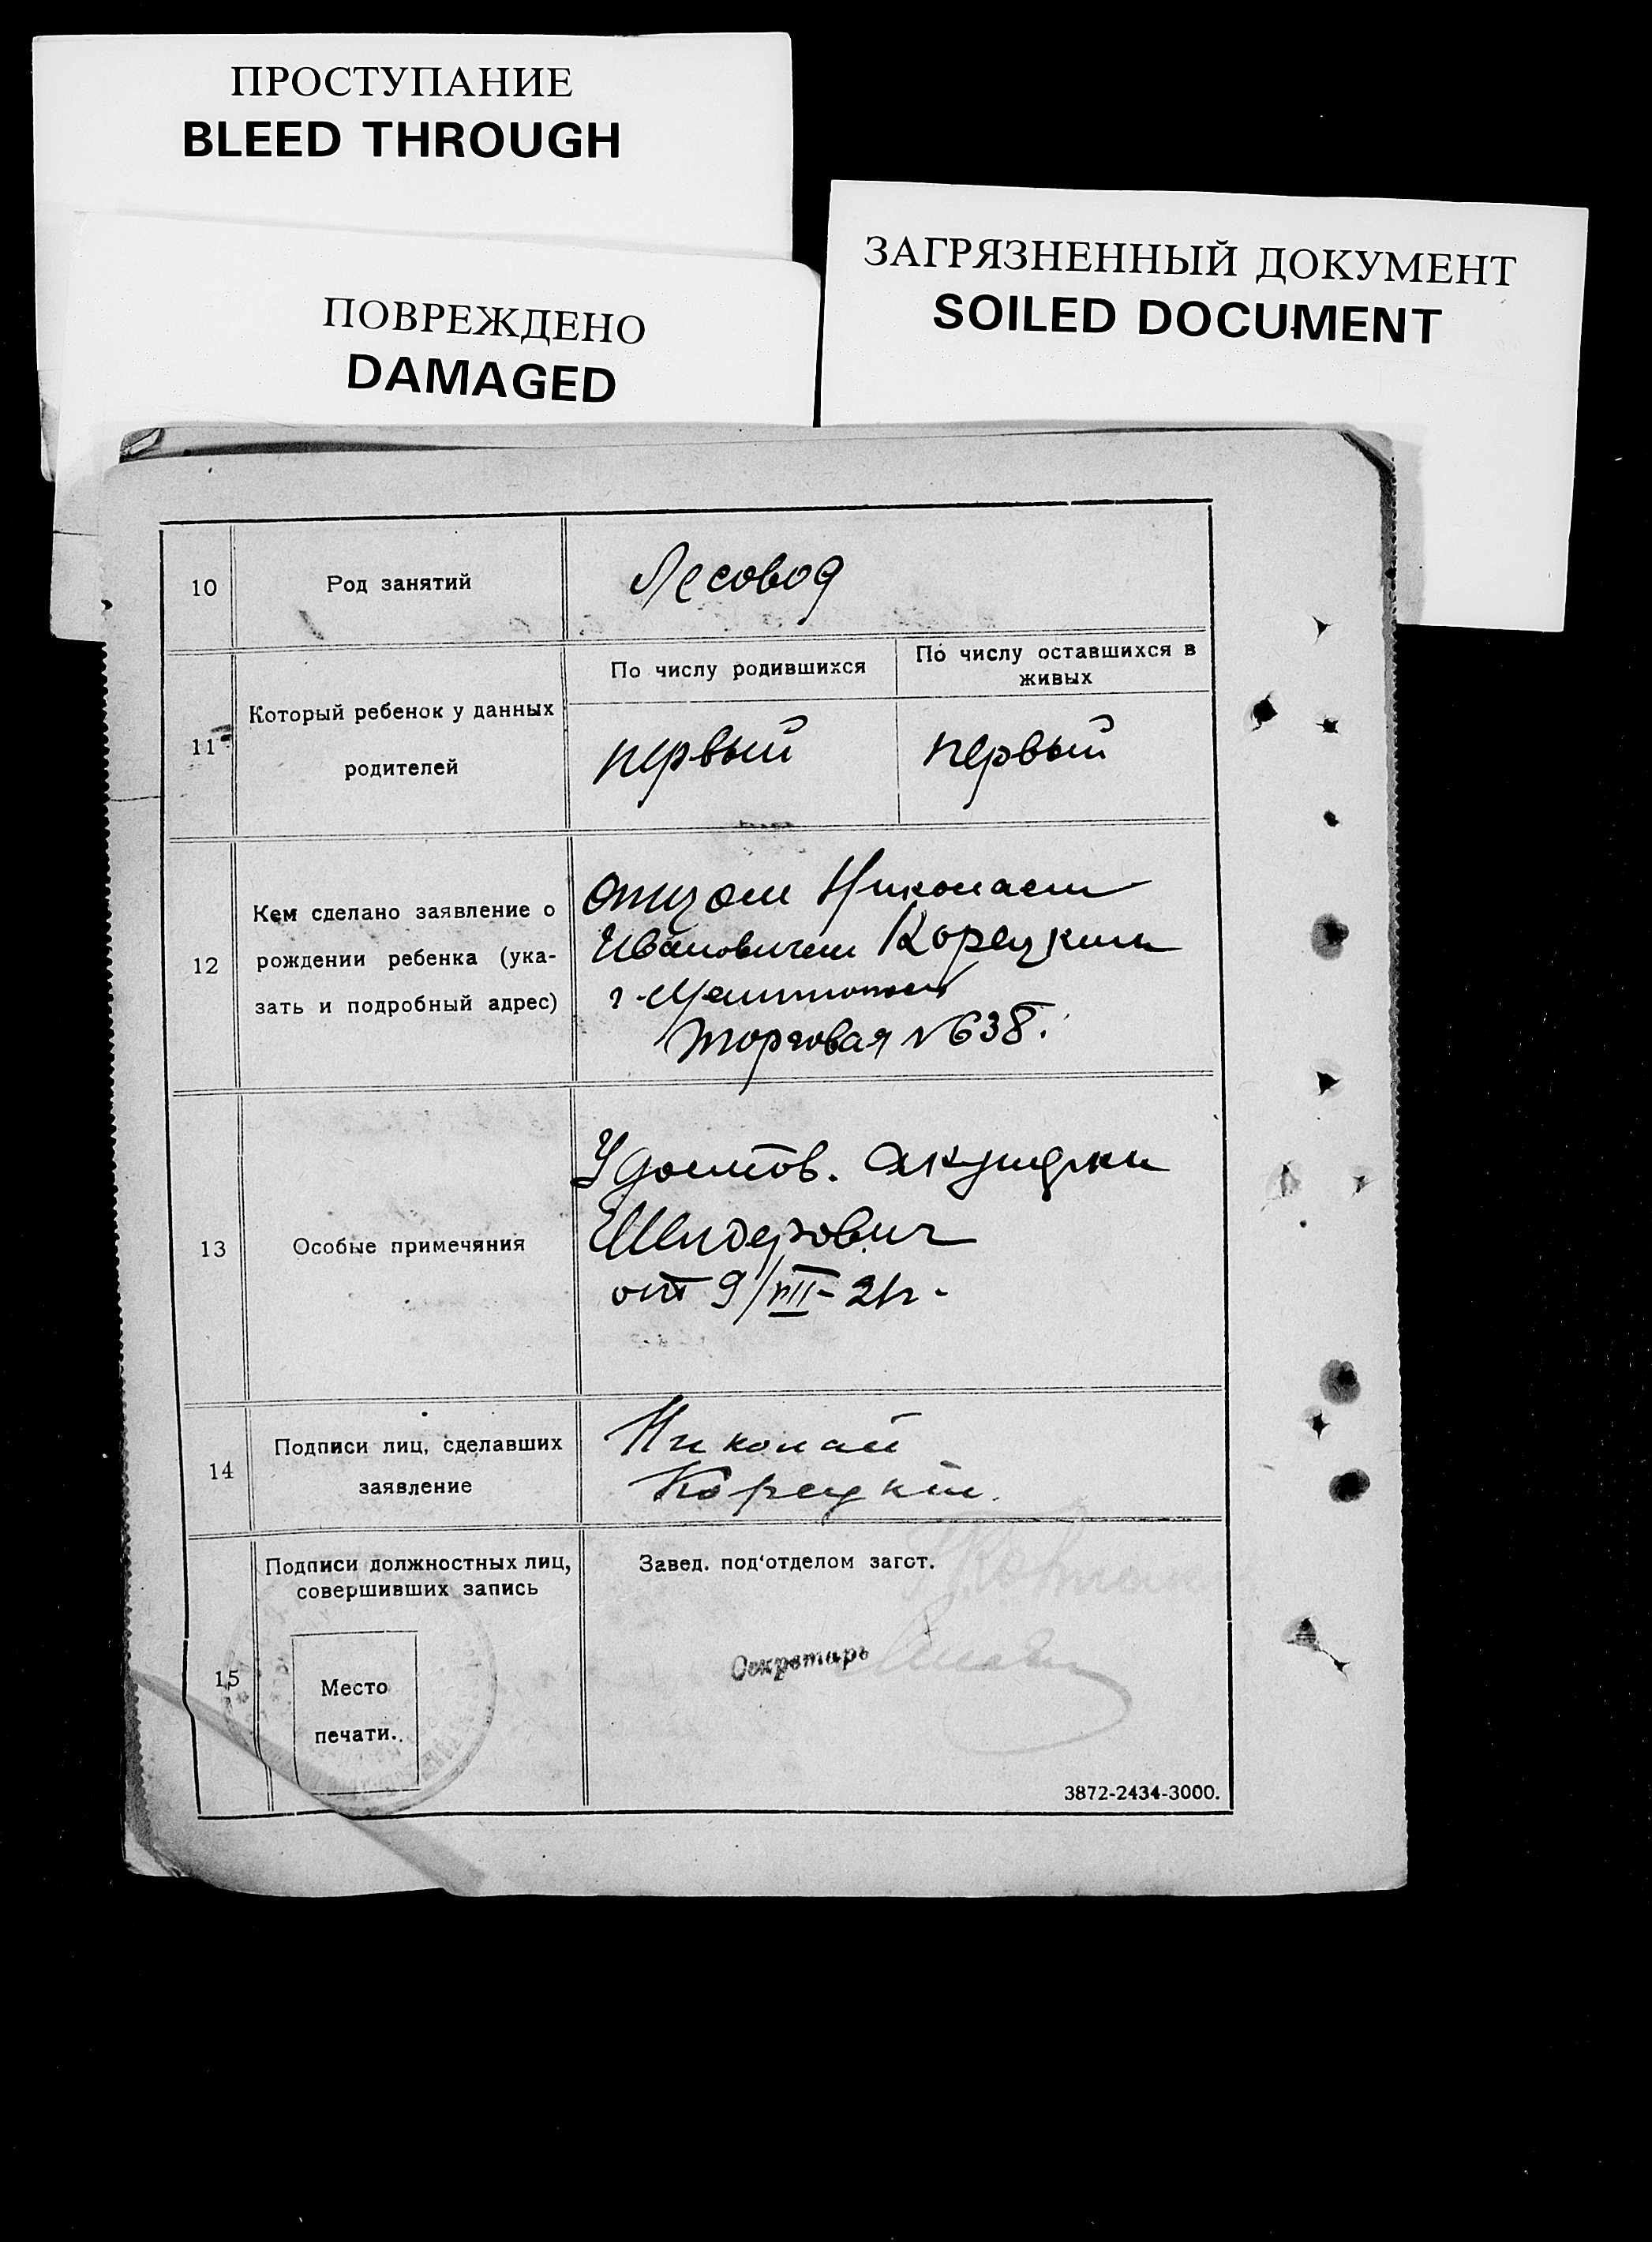 ПРОСТУПАНИЕ
BLEED THROUGH
ПОВРЕЖДЕНО
DAMAGED
ЗАГРЯЗНЕННЫЙ ДОКУМЕНТ
SOILED DOCUMENT
10
Род занятий
Лесовод
11
Который ребенок у данных
родителей
По числу родившихся
По числу оставшихся в
живых
первый
первый
12
Кем сделано заявление о
рождении ребенка (ука-
зать и подробный адрес)
отцом Николаем
Ивановичем Корецким
г.
Торговая №638.
13
Особые примечяния
Удостов. акушерки
от 9/VIII-21г.
14
Подписи лиц, сделавших
заявление
Николай
Корецкий.
15
Подписи должностных лиц,
совершивших запись
Место
печати.
Завед. под'отделом загст.
Секретарь
3872-2434-3000.